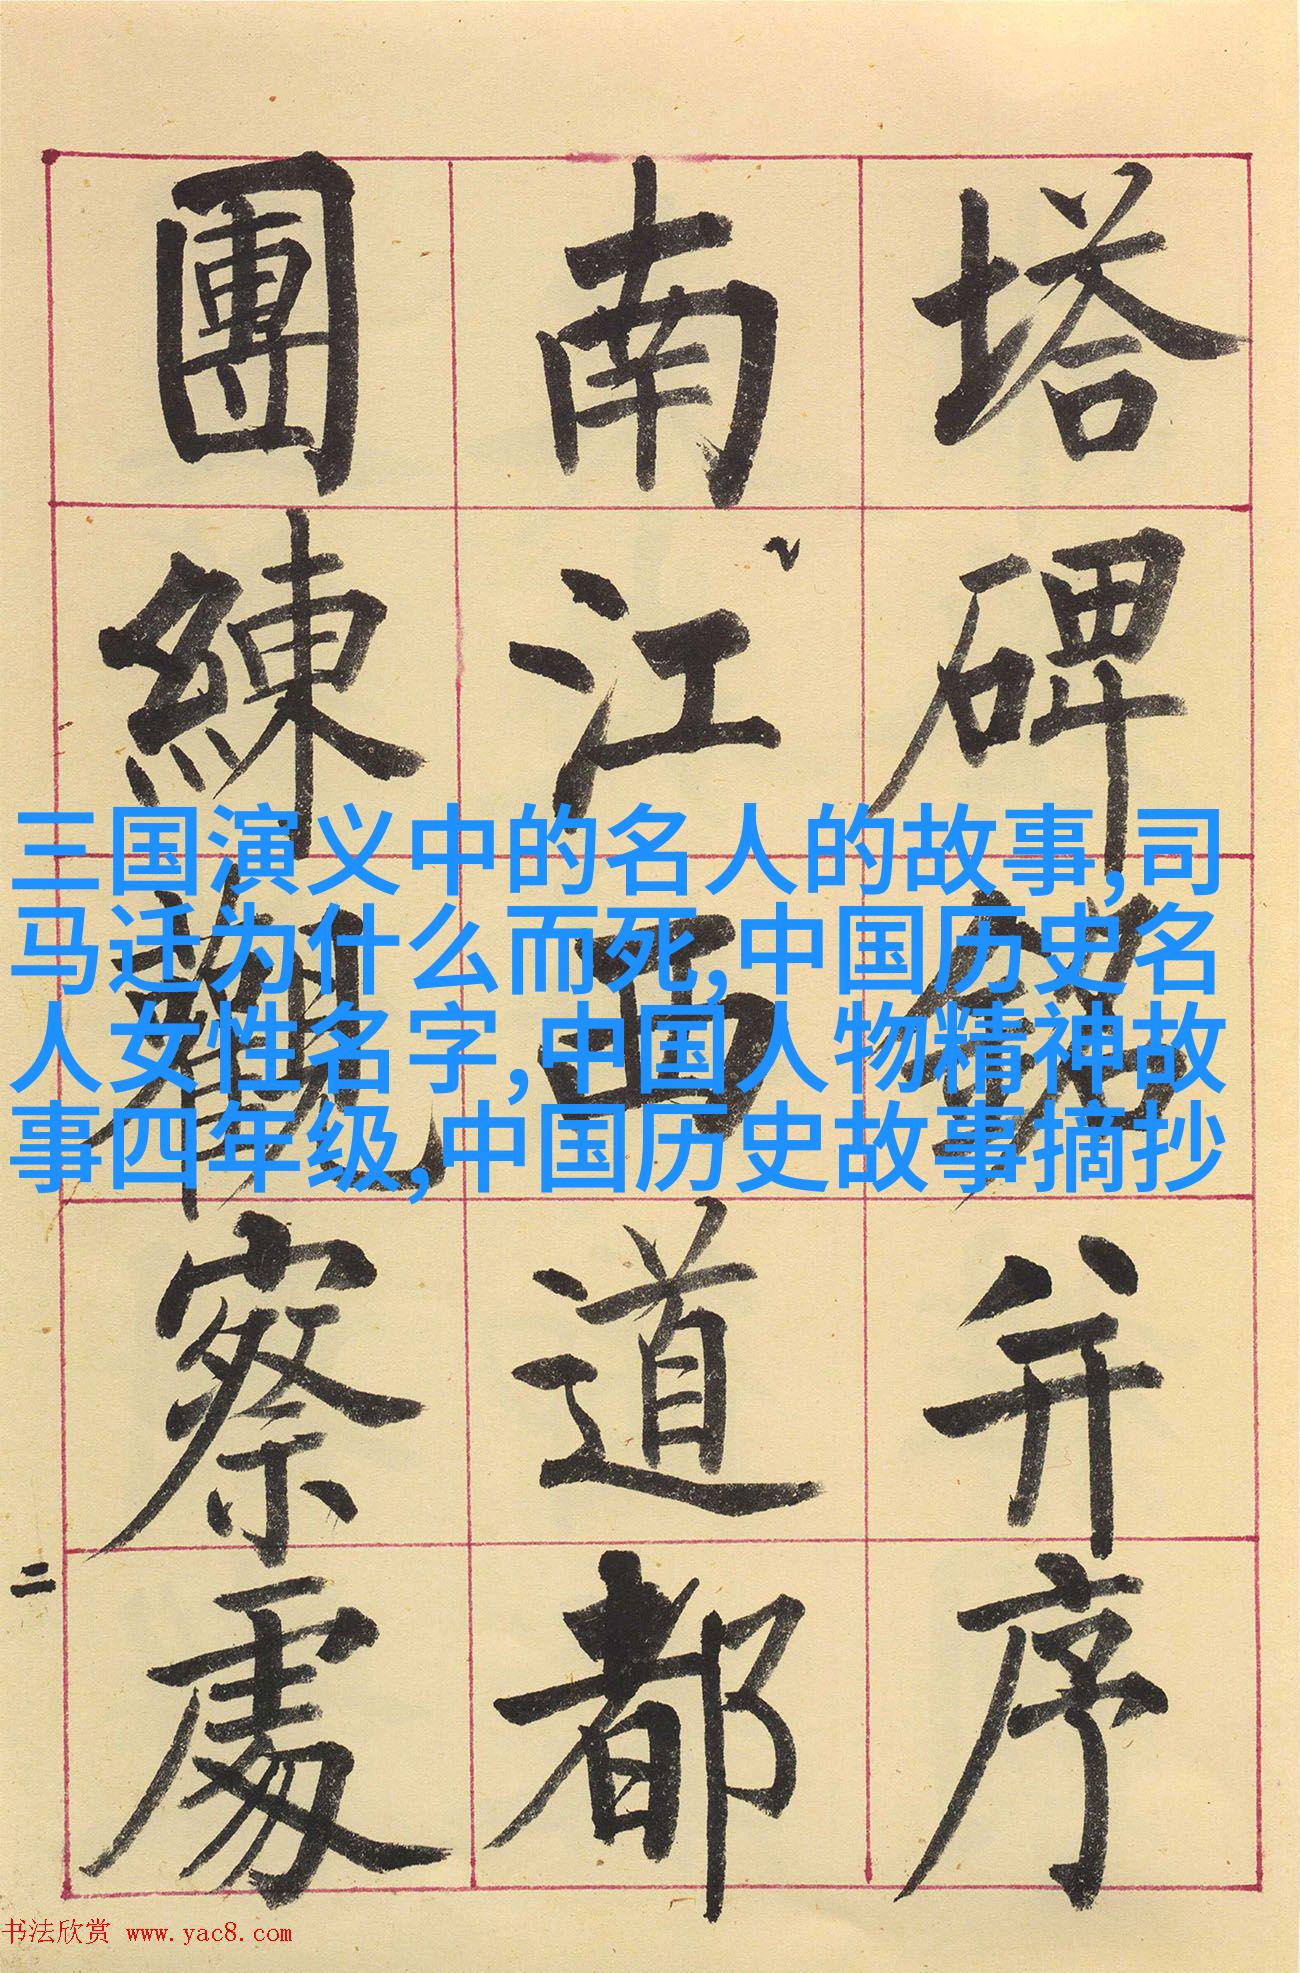 塔碑銘并序
南江西道都
團練觀察處
二
三国演义中的名人的故事,司
马迁为什么而死,中国历史名
人女性名字,中国人物精神故
事四年级,中国历史故事摘抄
书法欣赏 www.yac8.com